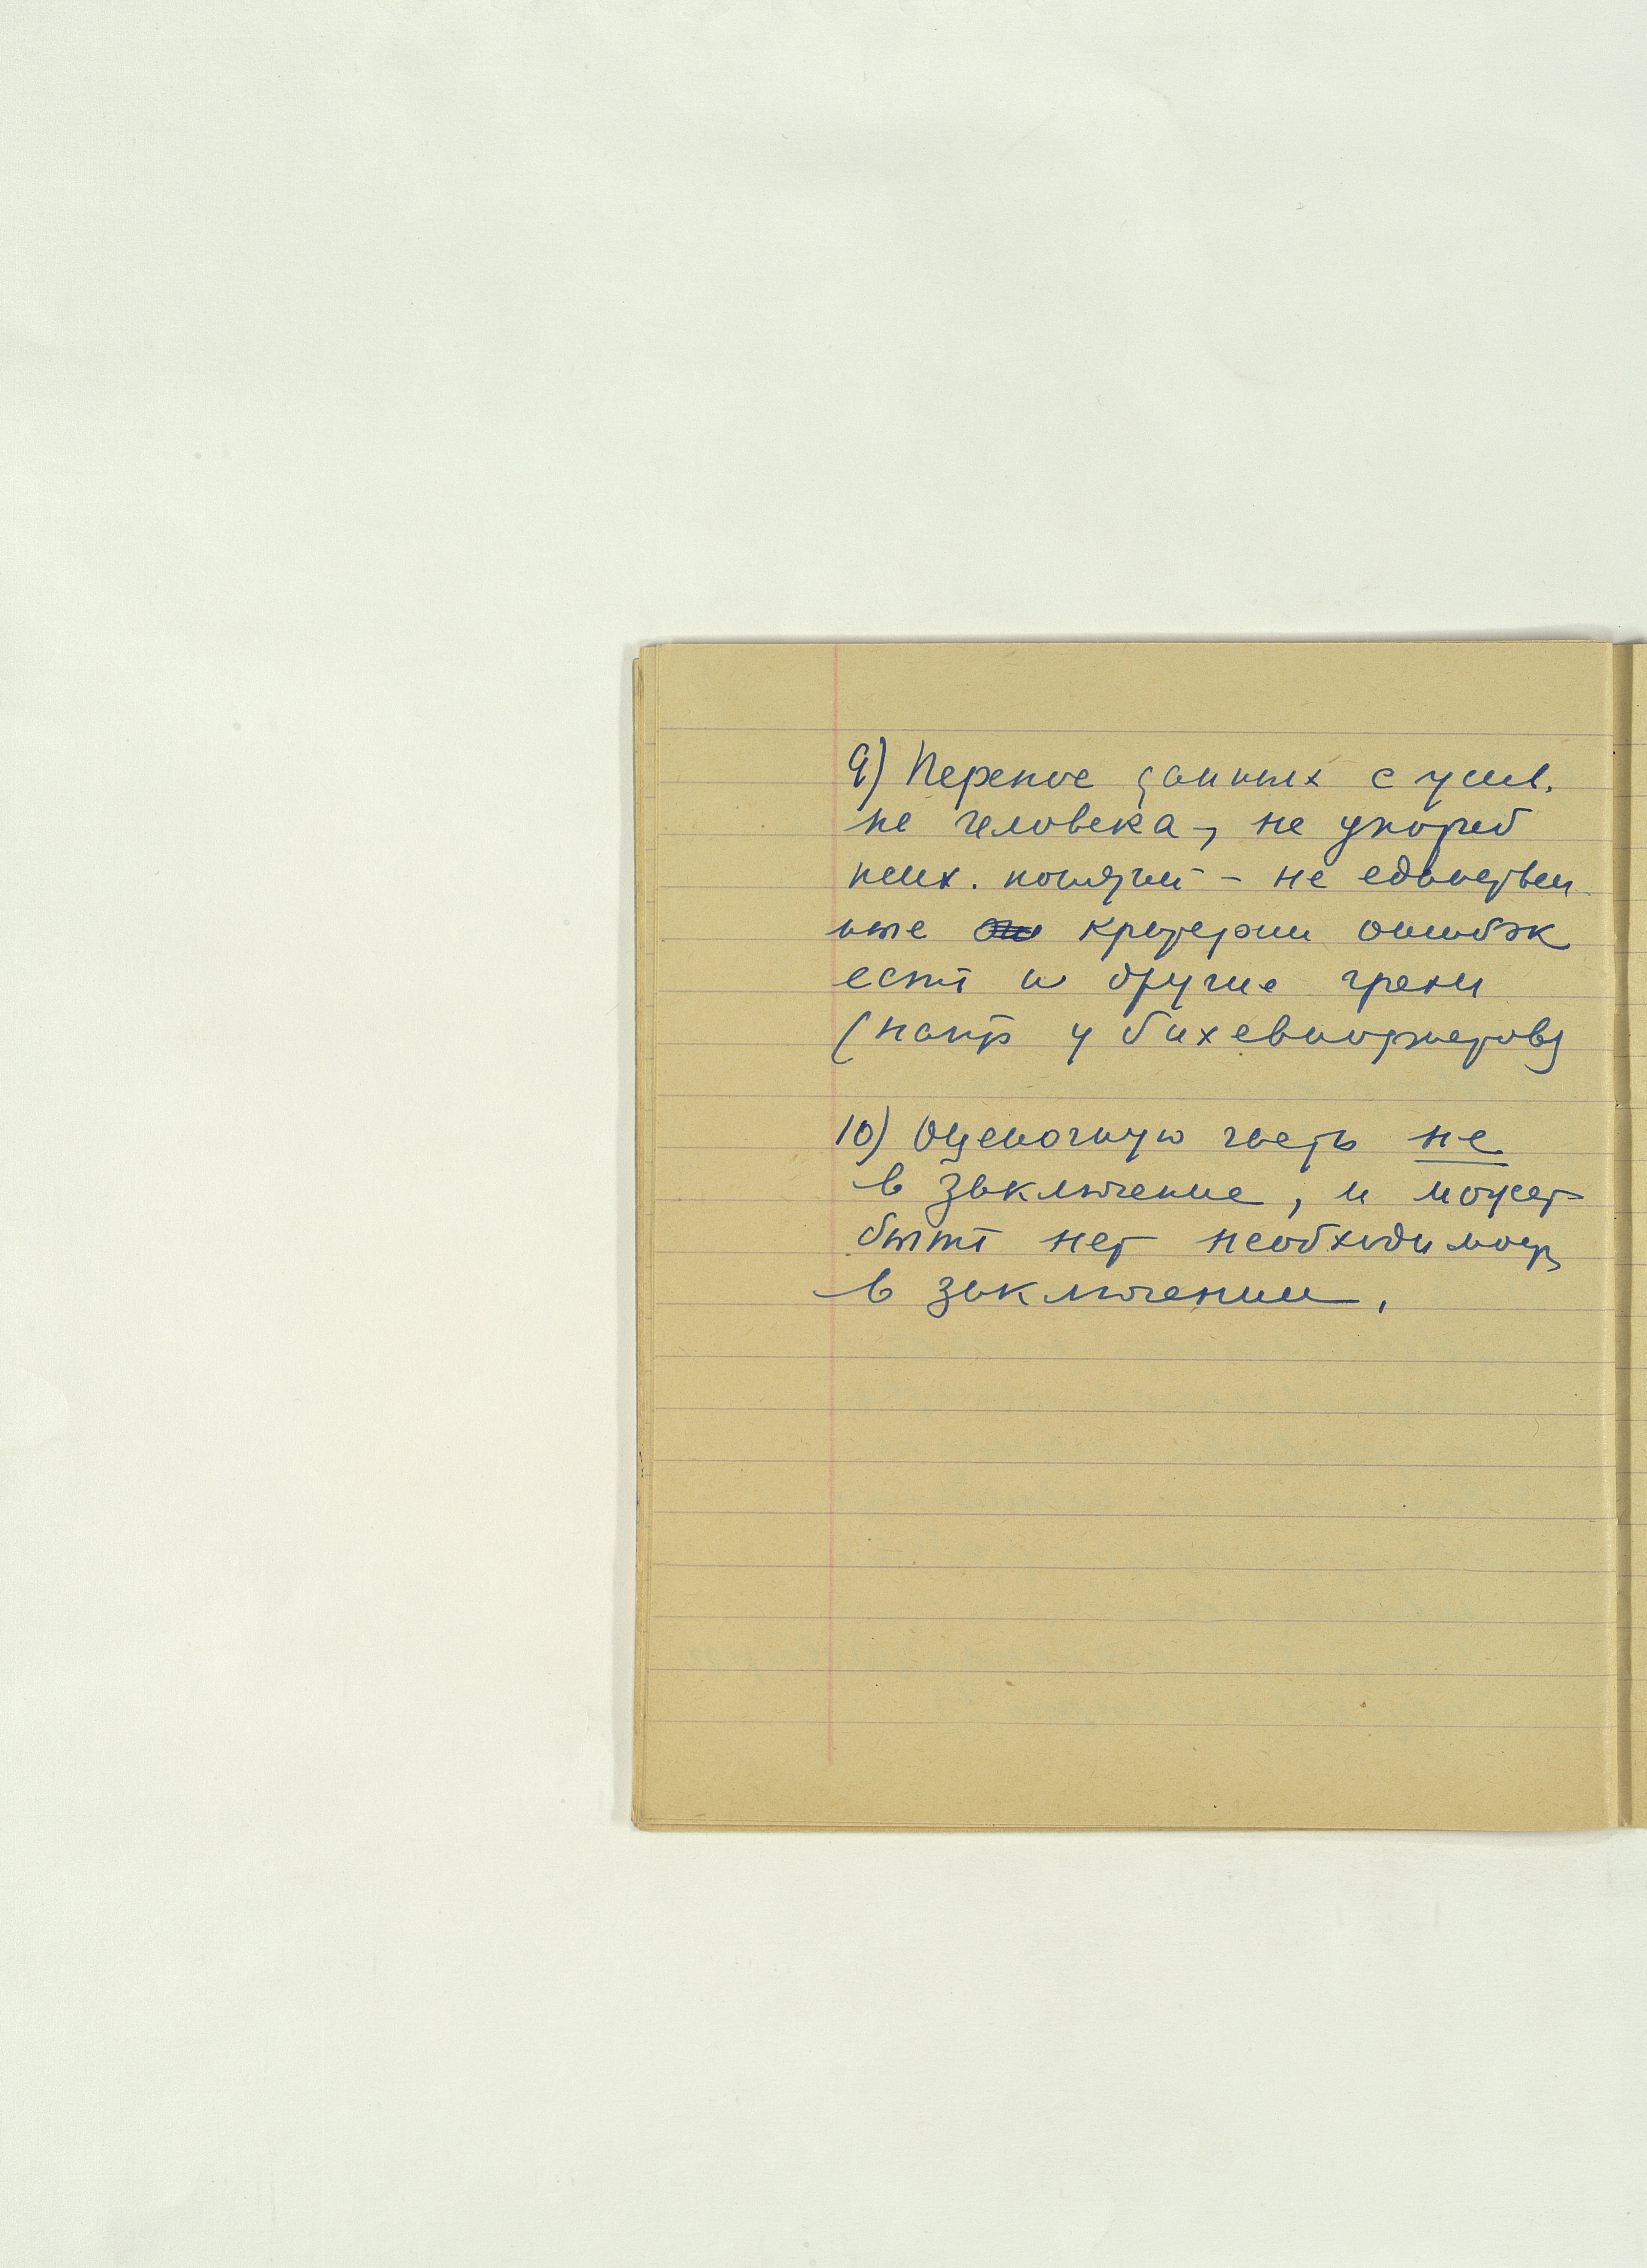 9) Перенос данных с
не человека, не употреб
псих. понятий - не единствен-
ные критерии ошибок
есть и другие грехи
(напр у бихевиористов)
10) Оценочную часть не
в заключение, и может
быть нет необходимост
в заключении.